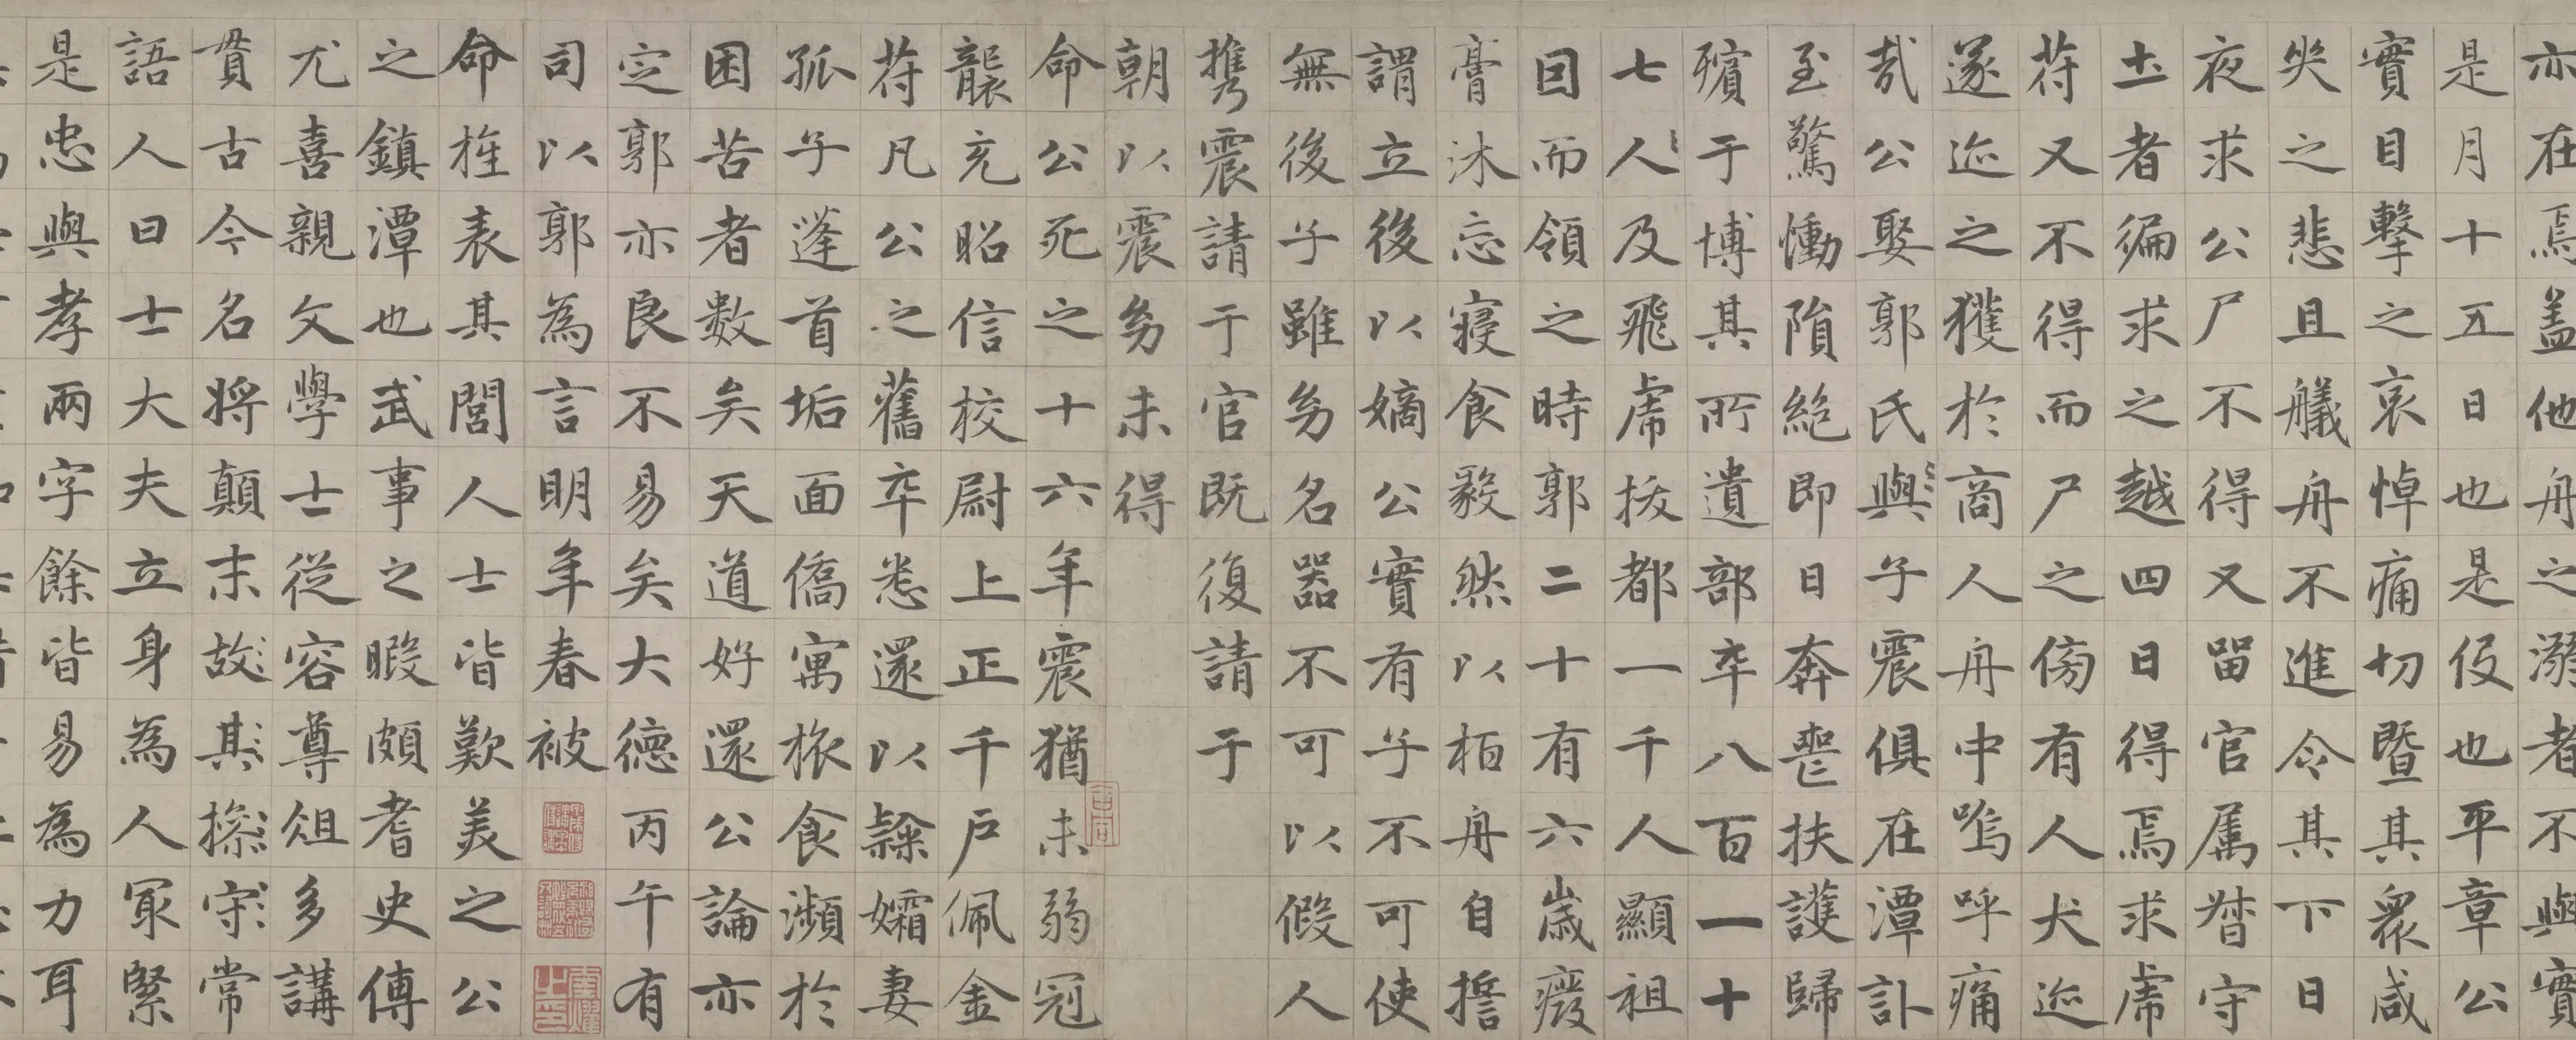 亦在焉盖他舟之溺者不與實
是月十五日也是伇也平章公
實目擊之哀悼痛切暨其衆咸
失之悲且艤舟不進令其下日
夜求公尸不得又留官属督守
土者徧求之越四日得焉求虎
苻又不得而尸之傍有人犬迹
遂迹之獲於商人舟中嗚呼痛
哉公娶郭氏與子震俱在潭訃
至驚慟隕絶即日奔喪扶護歸
殯于博其所遺部卒八百一十
七人及飛虎拔都一千人顯祖
因而領之時郭二十有六歲癈
膏沐忘寝食毅然以栢舟自誓
謂立後以嫡公實有子不可使
無後子雖㓜名器不可以假人
携震請于官既復請于
朝以震㓜未得
命公死之十六年震猶未弱冠
襲充昭信校尉上正千戸佩金
苻凡公之舊卒悉還以隸孀妻
孤子蓬首垢面僑寓旅食瀕於
困苦者數矣天道好還公論亦
定郭亦良不易矣大德丙午有
司以郭為言明年春被
命旌表其閭人士皆歎美之公
之鎮潭也武事之暇頗耆史傳
尤喜親文學士從容尊俎多講
貫古今名将顛末故其操守常
語人曰士大夫立身為人冣緊
是忠與孝兩字餘皆易為力耳